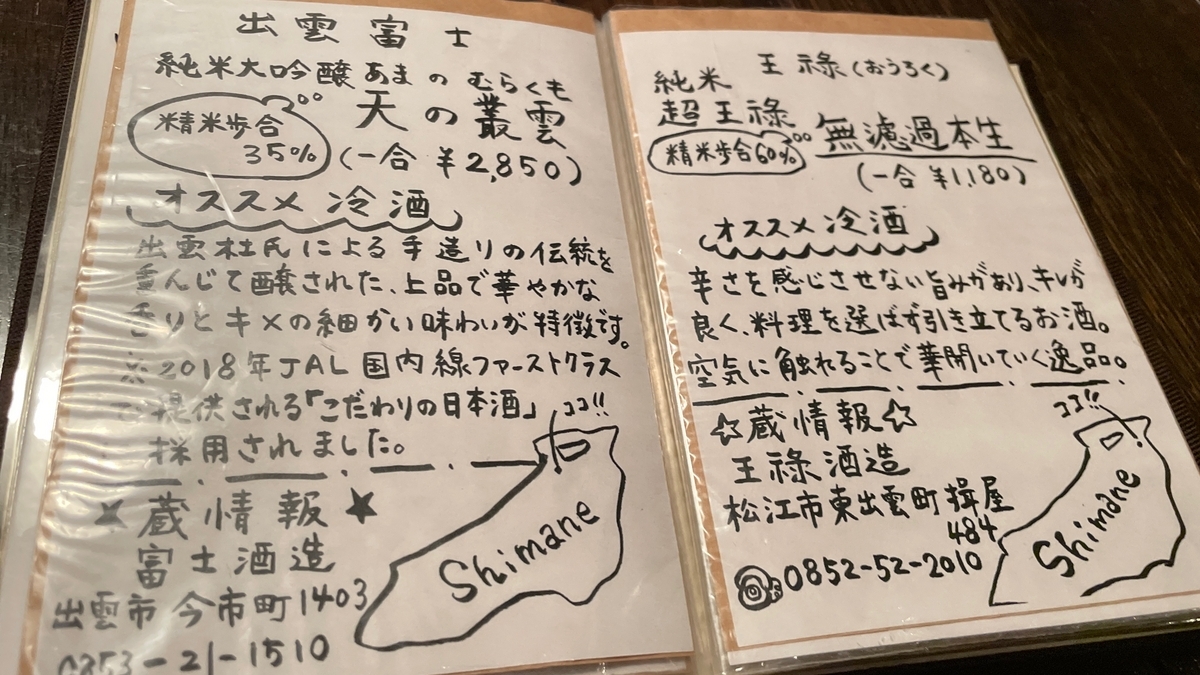 出雲富士
純米大吟醸あまのむらくも
天の叢雲
精米歩合
35%
(一合 ¥2,850)
オススメ 冷酒
出雲杜氏による手造りの伝統を
重んじて醸された、上品で華やかな
香りとキメの細かい味わいが特徴です。
※2018年JAL国内線ファーストクラス
で提供される「こだわりの日本酒」
採用されました。
ココ!!
Shimane
★蔵情報★
富士酒造
出雲市今市町1403
0853-21-1510
王祿(おうろく)
純米
超王祿
無濾過本生
精米歩合60%
(一合 ¥1,180)
オススメ 冷酒
辛さを感じさせない旨みがあり、キレが
良く、料理を選ばず引き立てるお酒。
空気に触れることで華開いていく逸品。
ココ!!
Shimane
☆蔵情報☆
王祿酒造
松江市東出雲町揖屋
484
0852-52-2010